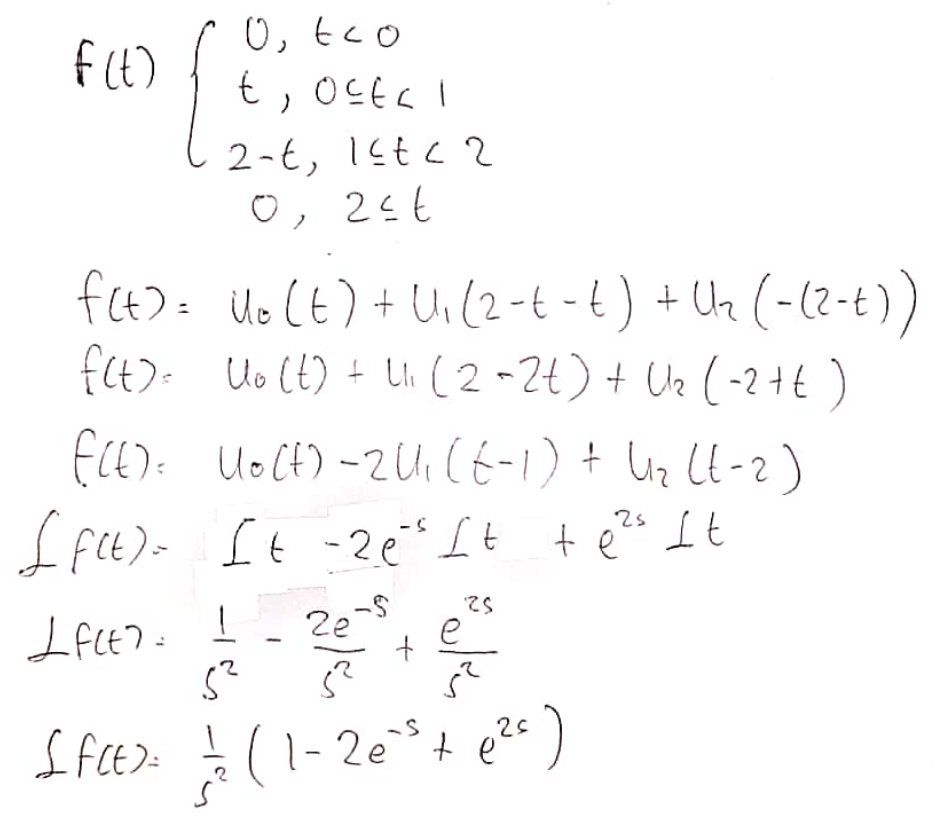 f(t) { 0, t<0
t, 0≤t<1
2-t, 1≤t<2
0, 2≤t
f(t)= u₀(t) + u₁(2-t-t) + u₂(-(2-t))
f(t)= u₀(t) + u₁(2-2t) + u₂(-2+t)
f(t)= u₀(t) -2u₁(t-1) + u₂(t-2)
ℒf(t)= ℒt -2e⁻ˢ ℒt + e²ˢ ℒt
ℒf(t)= 1/s² - 2e⁻ˢ/s² + e²ˢ/s²
ℒf(t)= 1/s² (1-2e⁻ˢ + e²ˢ)